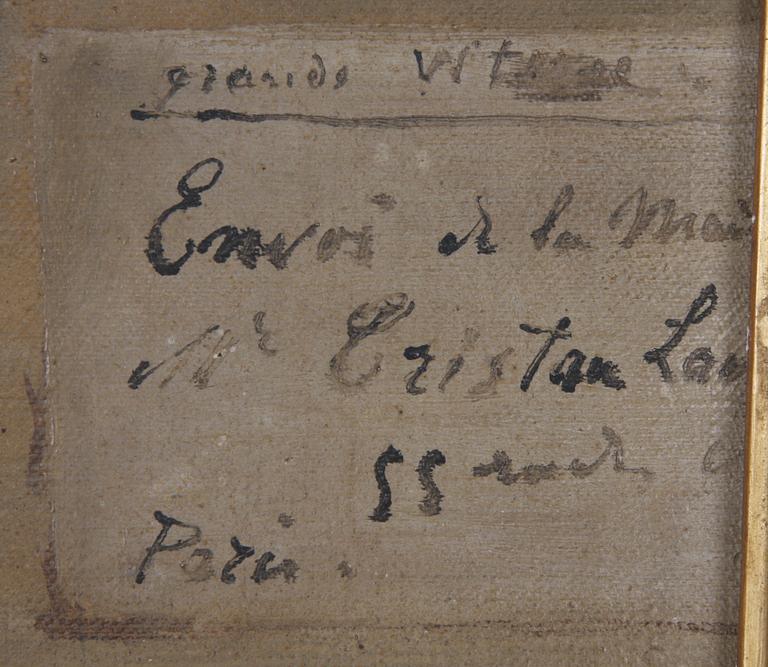 grande vitesse
Envoi de la Mai
Mr Tristan Lau
55 rue de
Paris.